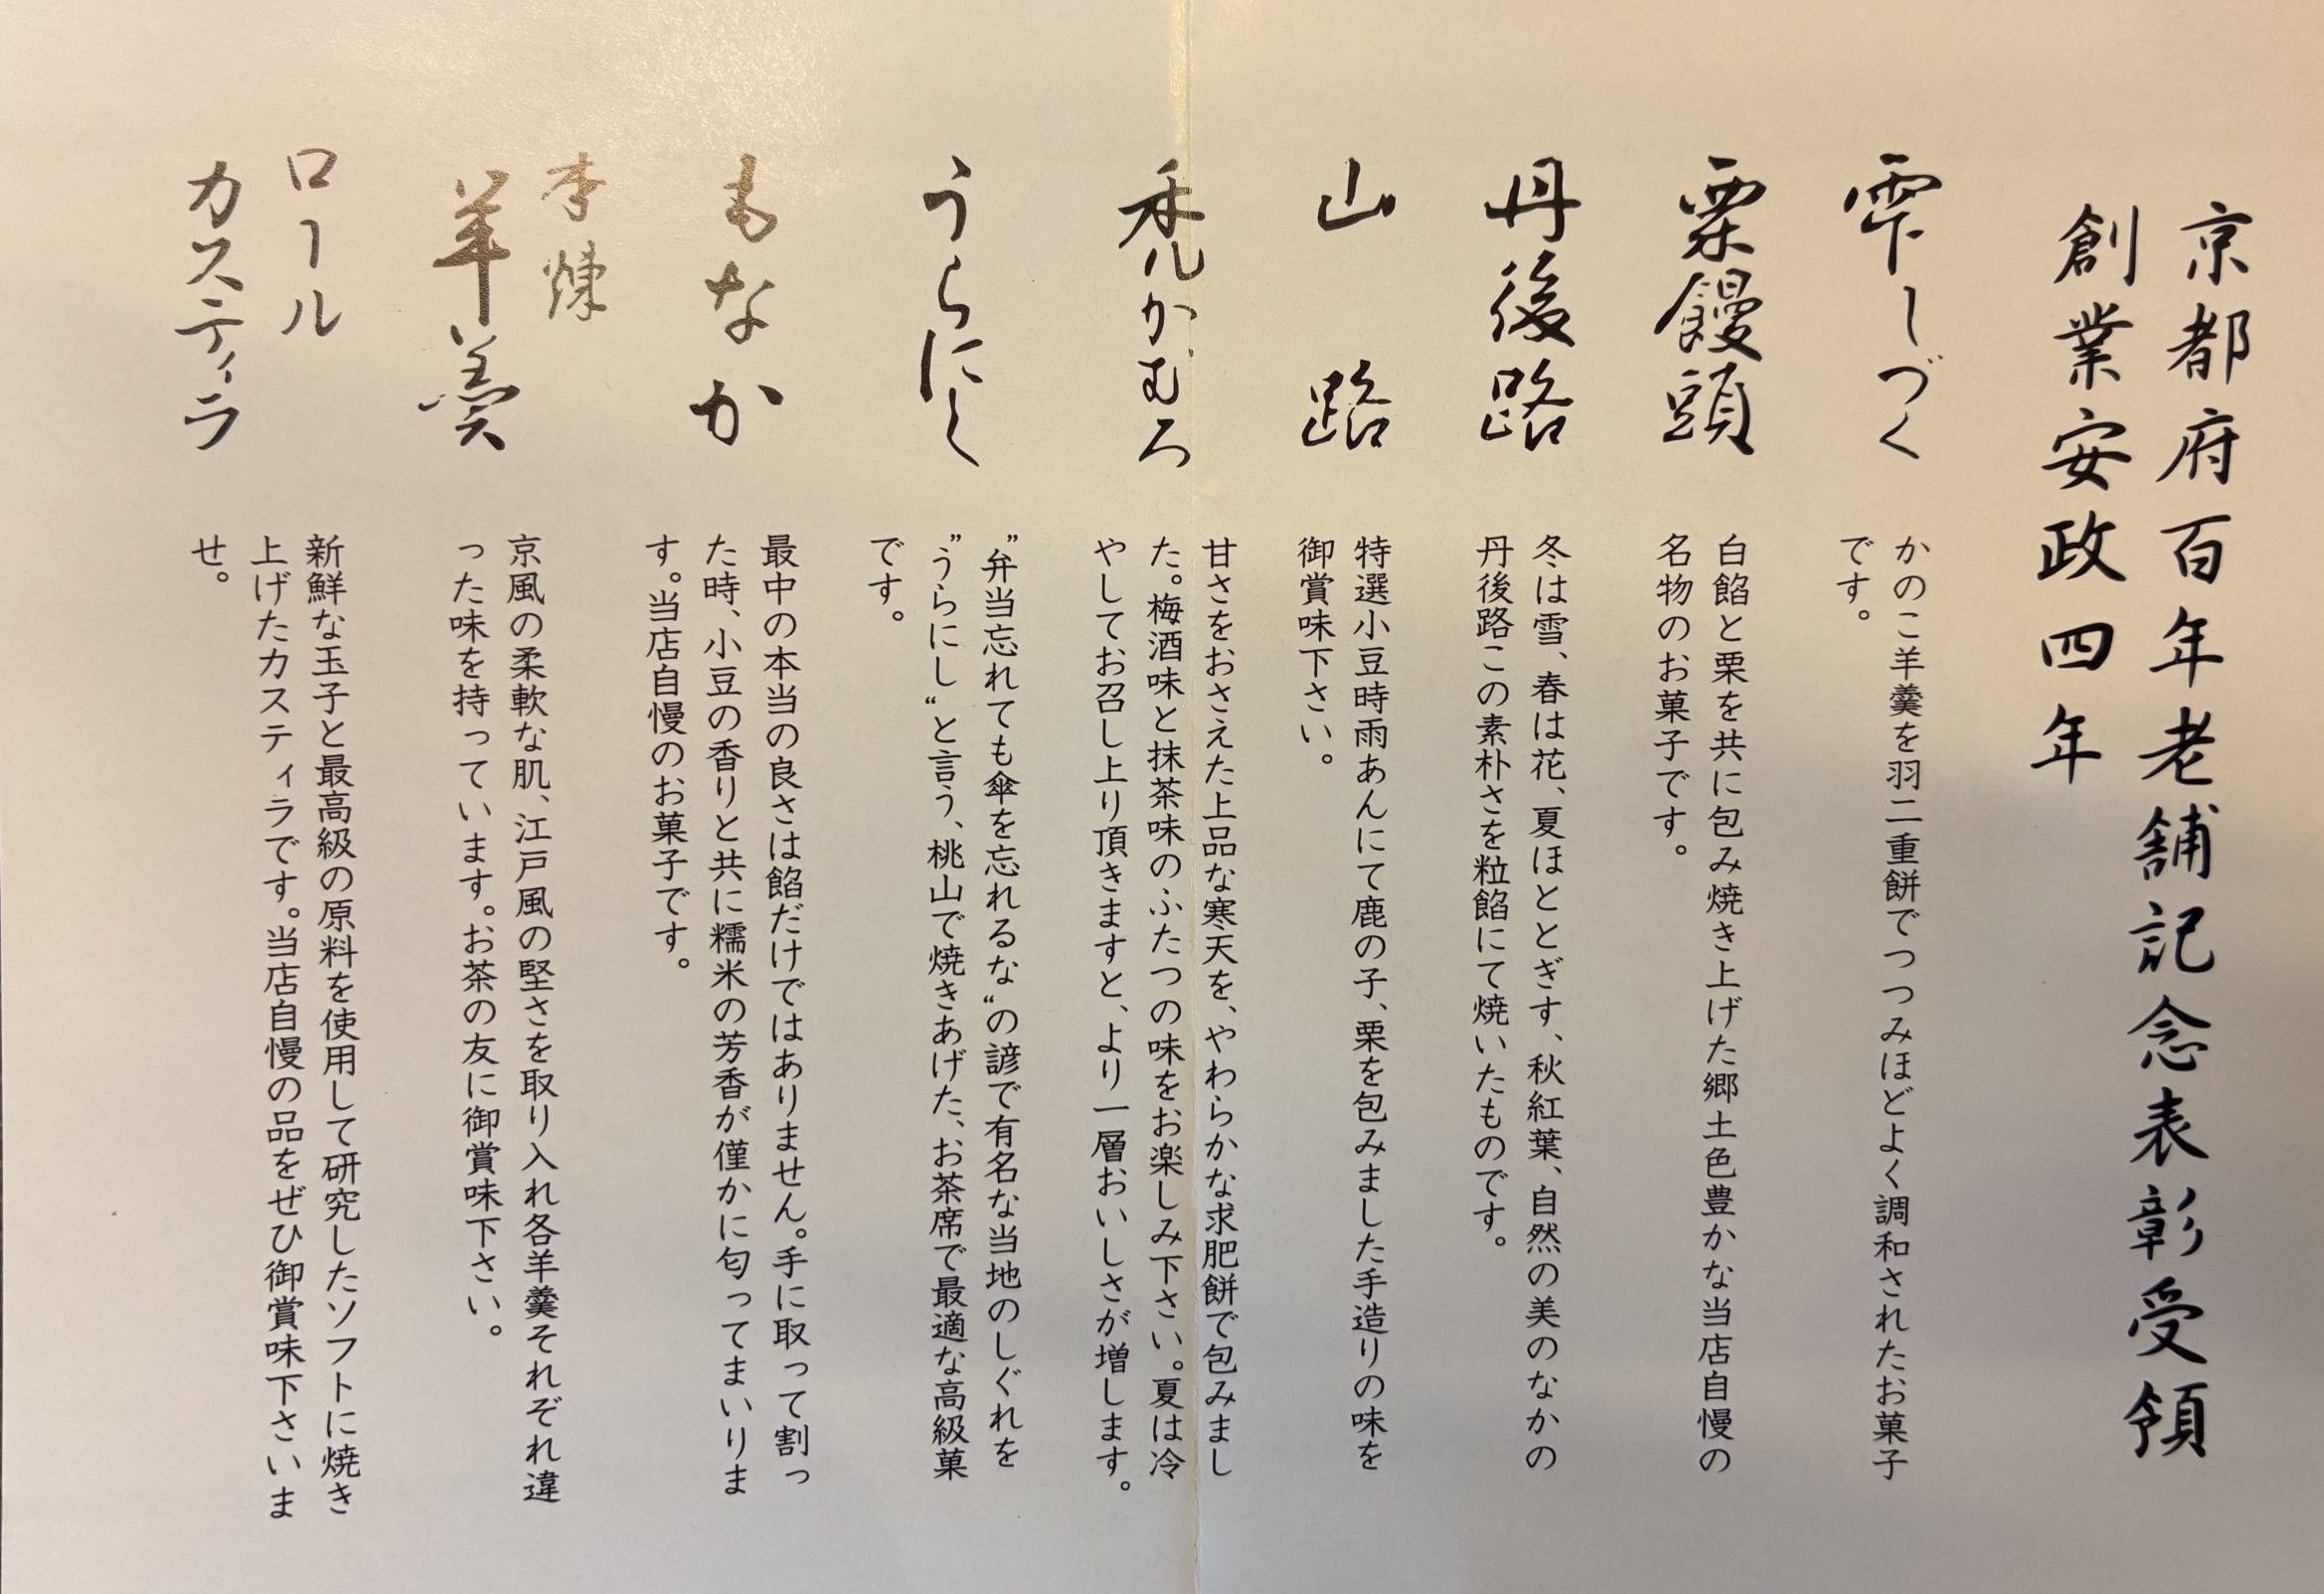 京都府百年老舗記念表彰受領
創業安政四年
雫しづく
かのこ羊羹を羽二重餅でつつみほどよく調和されたお菓子
です。
栗饅頭
白餡と栗を共に包み焼き上げた郷土色豊かな当店自慢の
名物のお菓子です。
丹後路
冬は雪、春は花、夏ほととぎす、秋紅葉、自然の美のなかの
丹後路この素朴さを粒餡にて焼いたものです。
山路
特選小豆時雨あんにて鹿の子、栗を包みました手造りの味を
御賞味下さい。
禿かむろ
甘さをおさえた上品な寒天を、やわらかな求肥餅で包みまし
た。梅酒味と抹茶味のふたつの味をお楽しみ下さい。夏は冷
やしてお召し上り頂きますと、より一層おいしさが増します。
うらにし
〝弁当忘れても傘を忘れるな〟の諺で有名な当地のしぐれを
〝うらにし〟と言う、桃山で焼きあげた、お茶席で最適な高級菓
です。
もなか
最中の本当の良さは餡だけではありません。手に取って割っ
た時、小豆の香りと共に糯米の芳香が僅かに匂ってまいりま
す。当店自慢のお菓子です。
本煉
羊羹
京風の柔軟な肌、江戸風の堅さを取り入れ各羊羹それぞれ違
った味を持っています。お茶の友に御賞味下さい。
ロール
カスティラ
新鮮な玉子と最高級の原料を使用して研究したソフトに焼き
上げたカスティラです。当店自慢の品をぜひ御賞味下さいま
せ。